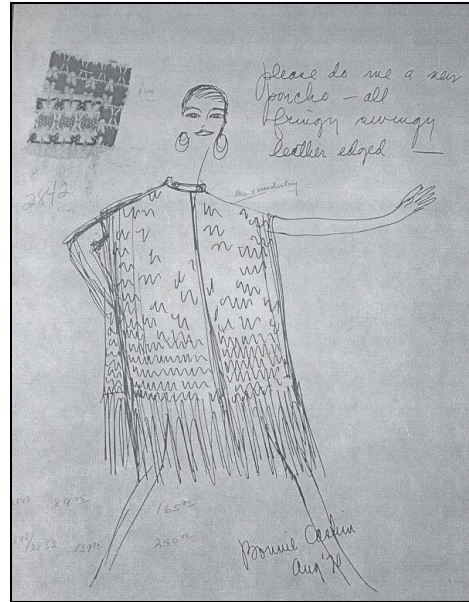 please do me a new
poncho — all
fringy swingy
leather edged —
2842
89 75
165 00
2832
139 75
250 00
Bonnie Cashin
Aug '70